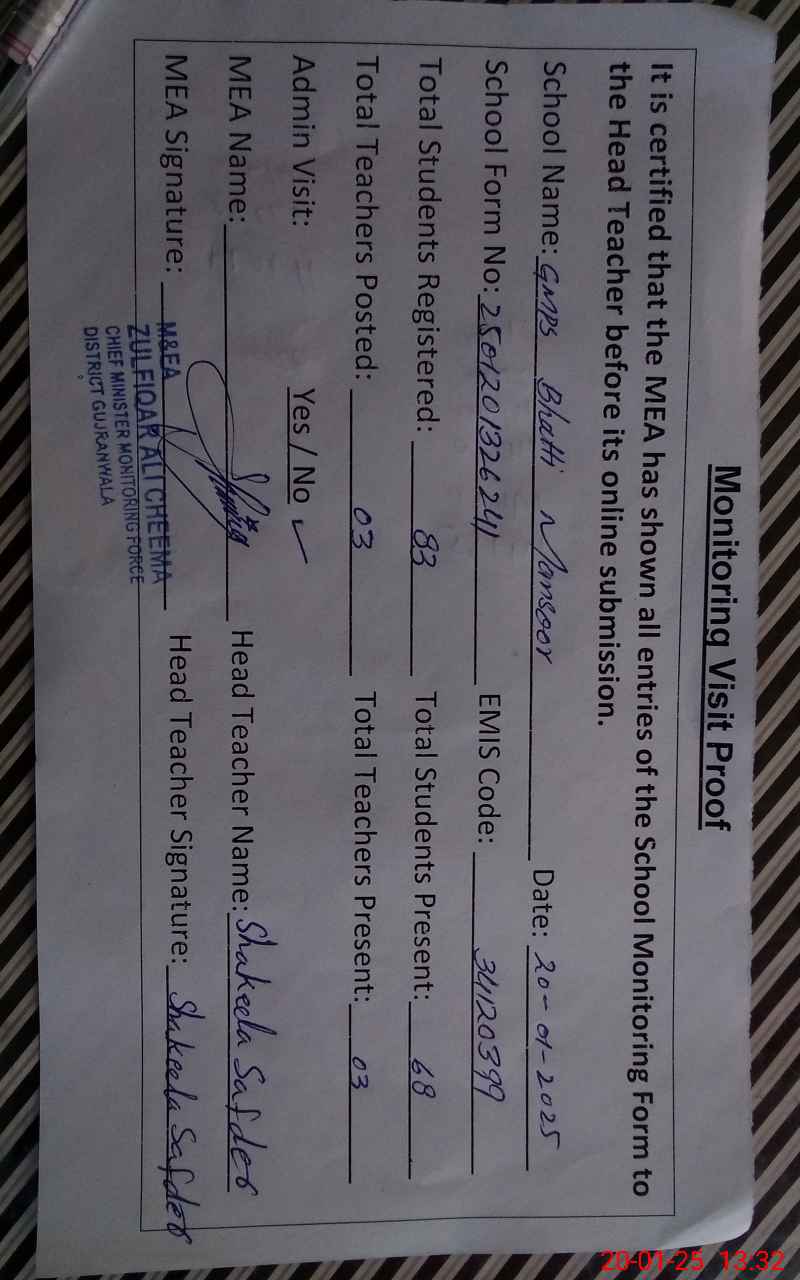 Monitoring Visit Proof
It is certified that the MEA has shown all entries of the School Monitoring Form to
the Head Teacher before its online submission.
School Name: GMPS Bhatti Mansoor Date: 20-01-2025
School Form No: 2501201326241 EMIS Code: 34120399
Total Students Registered: 83 Total Students Present: 68
Total Teachers Posted: 03 Total Teachers Present: 03
Admin Visit: Yes / No ✓
MEA Name: Head Teacher Name: Shakeela Safder
MEA Signature: Head Teacher Signature: Shakeela Safder
M&EA
ZULFIQAR ALI CHEEMA
CHIEF MINISTER MONITORING FORCE
DISTRICT GUJRANWALA
20-01-25 13:32